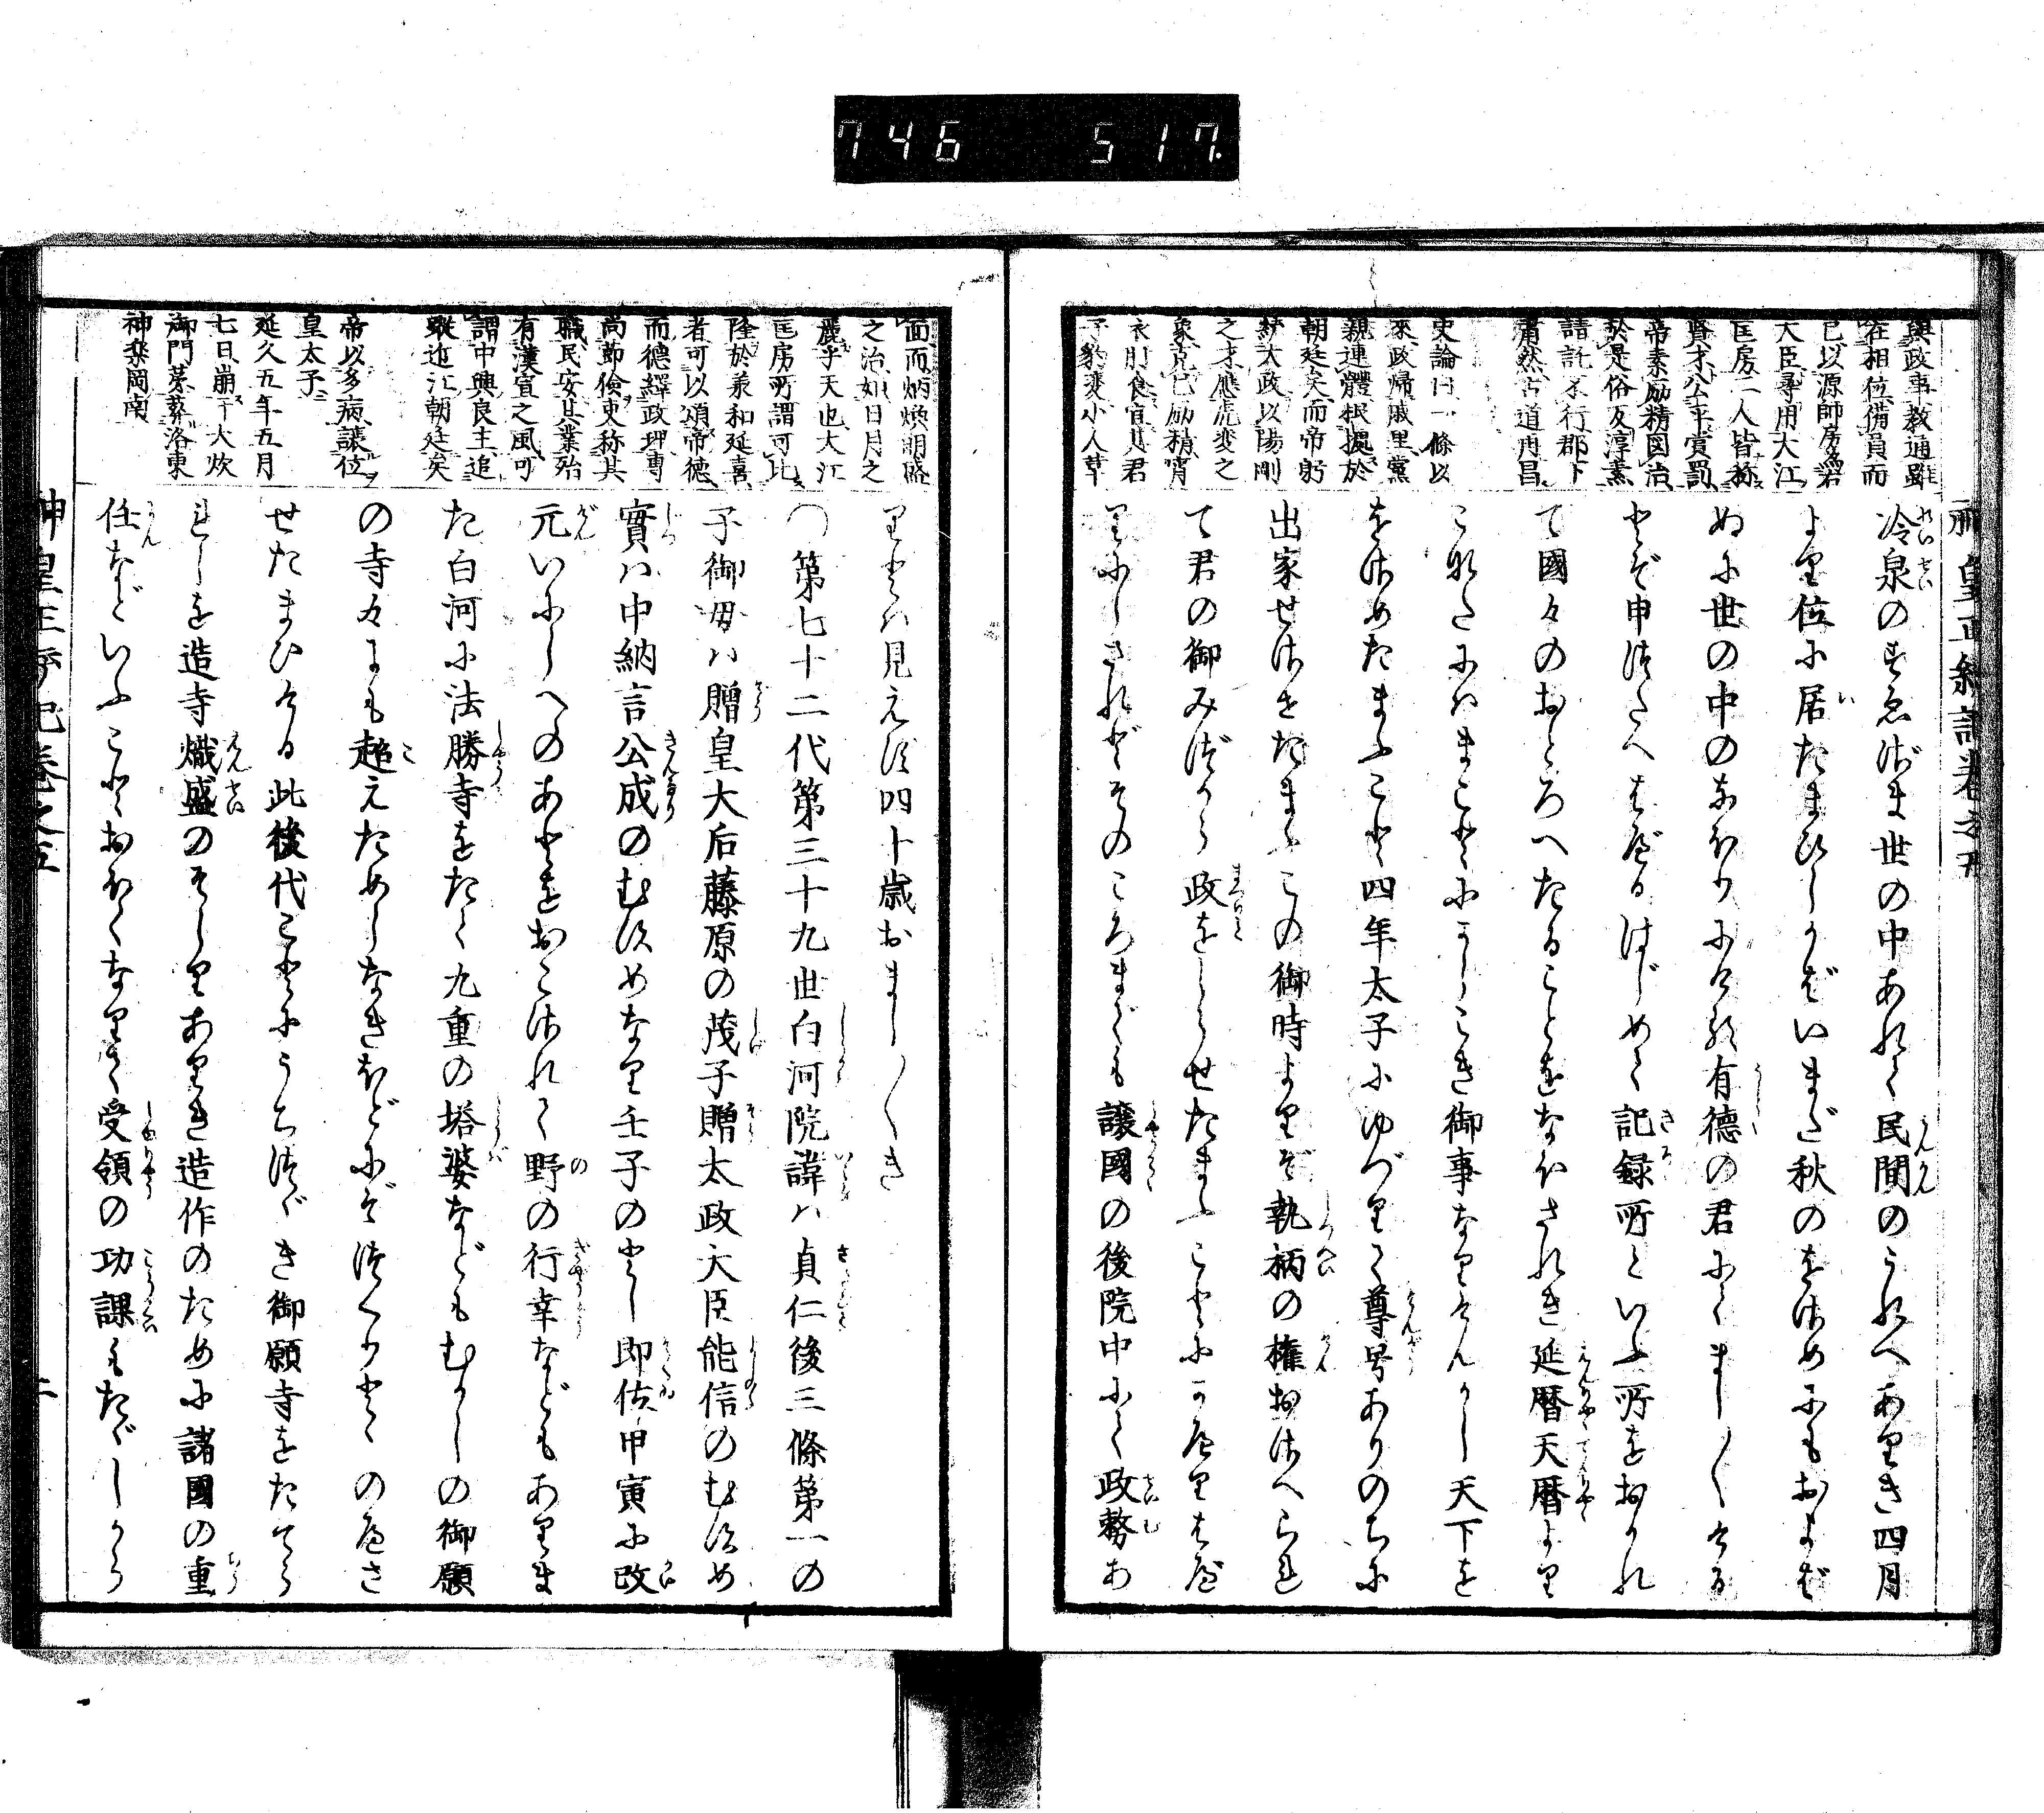 746 517.
興政事教通雖
在相位備員而
已以源師房為右
大臣尋用大江
匡房二人皆称
賢才公平賞罰
帝素励精図治
於是俗反淳素
請託不行郡下
肅然古道再昌
史論曰一條以
来政帰戚里黨
親連體根據於
朝廷矣而帝躬
綜大政以陽剛
之才應虎変之
象克己励精宵
衣旰食宜其君
子豹変小人革
冷泉のすゑざま世の中あれて民間のうれへありき四月
より位に居たまひしかばいまだ秋のをさめにもおよば
ぬに世の中のなほりにける有徳の君にてまし〱ける
とぞ申つたへはべるはじめて記録所といふ所をおかれ
て國々のおとろへたることをなほされき延暦天暦より
こなたにハまことにかしこき御事なりけんかし天下を
をさめたまふこと四年太子にゆづりて尊号ありのちに
出家せさせたまふこの御時よりぞ執柄の権おさへられ
て君の御みづから政をしらせたまふことにかへりはべ
りにしされどそのころまでも譲國の後院中にて政務あ
面而炳煥明盛
之治如日月之
麗乎天也大江
匡房所謂可比
隆於承和延喜
者可以頌帝徳
而徳繹政理専
尚節倹吏称其
職民安其業殆
有漢宣之風可
謂中興良主追
蹤近江朝廷矣
帝以多病譲位
皇太子
延久五年五月
七日崩于大炊
御門第葬洛東
神楽岡南
りとハ見えず四十歳おまし〱き
〇第七十二代第三十九世白河院諱ハ貞仁後三條第一の
子御母ハ贈皇大后藤原の茂子贈太政大臣能信のむすめ
實ハ中納言公成のむすめなり壬子のとし即位甲寅に改
元いにしへのあとをおこされて野の行幸などもありま
た白河に法勝寺をたて九重の塔婆などもむかしの御願
の寺々にも超えためしなきほどにぞつくりとゝのへさ
せたまひける此後代ごとにうちつゞき御願寺をたてら
れしを造寺熾盛のそしりありき造作のために諸國の重
任などいふことおほくなりて受領の功課もたゞしから
神皇正統記巻之五
二